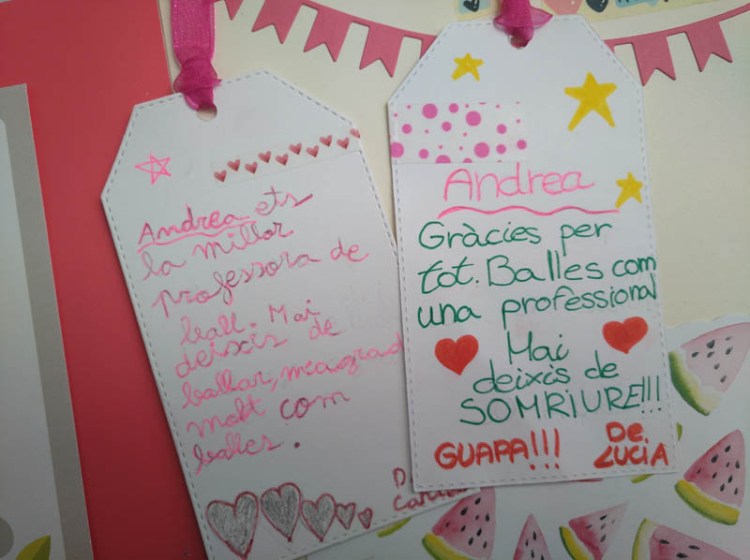 Andrea ets
la millor
professora de
ball. Mai
deixis de
ballar, m'agrad
molt com
balles.
D
Car
Andrea
Gràcies per
tot. Balles com
una professional
Mai
deixis de
SOMRIURE!!!
GUAPA!!!
De
LUCIA